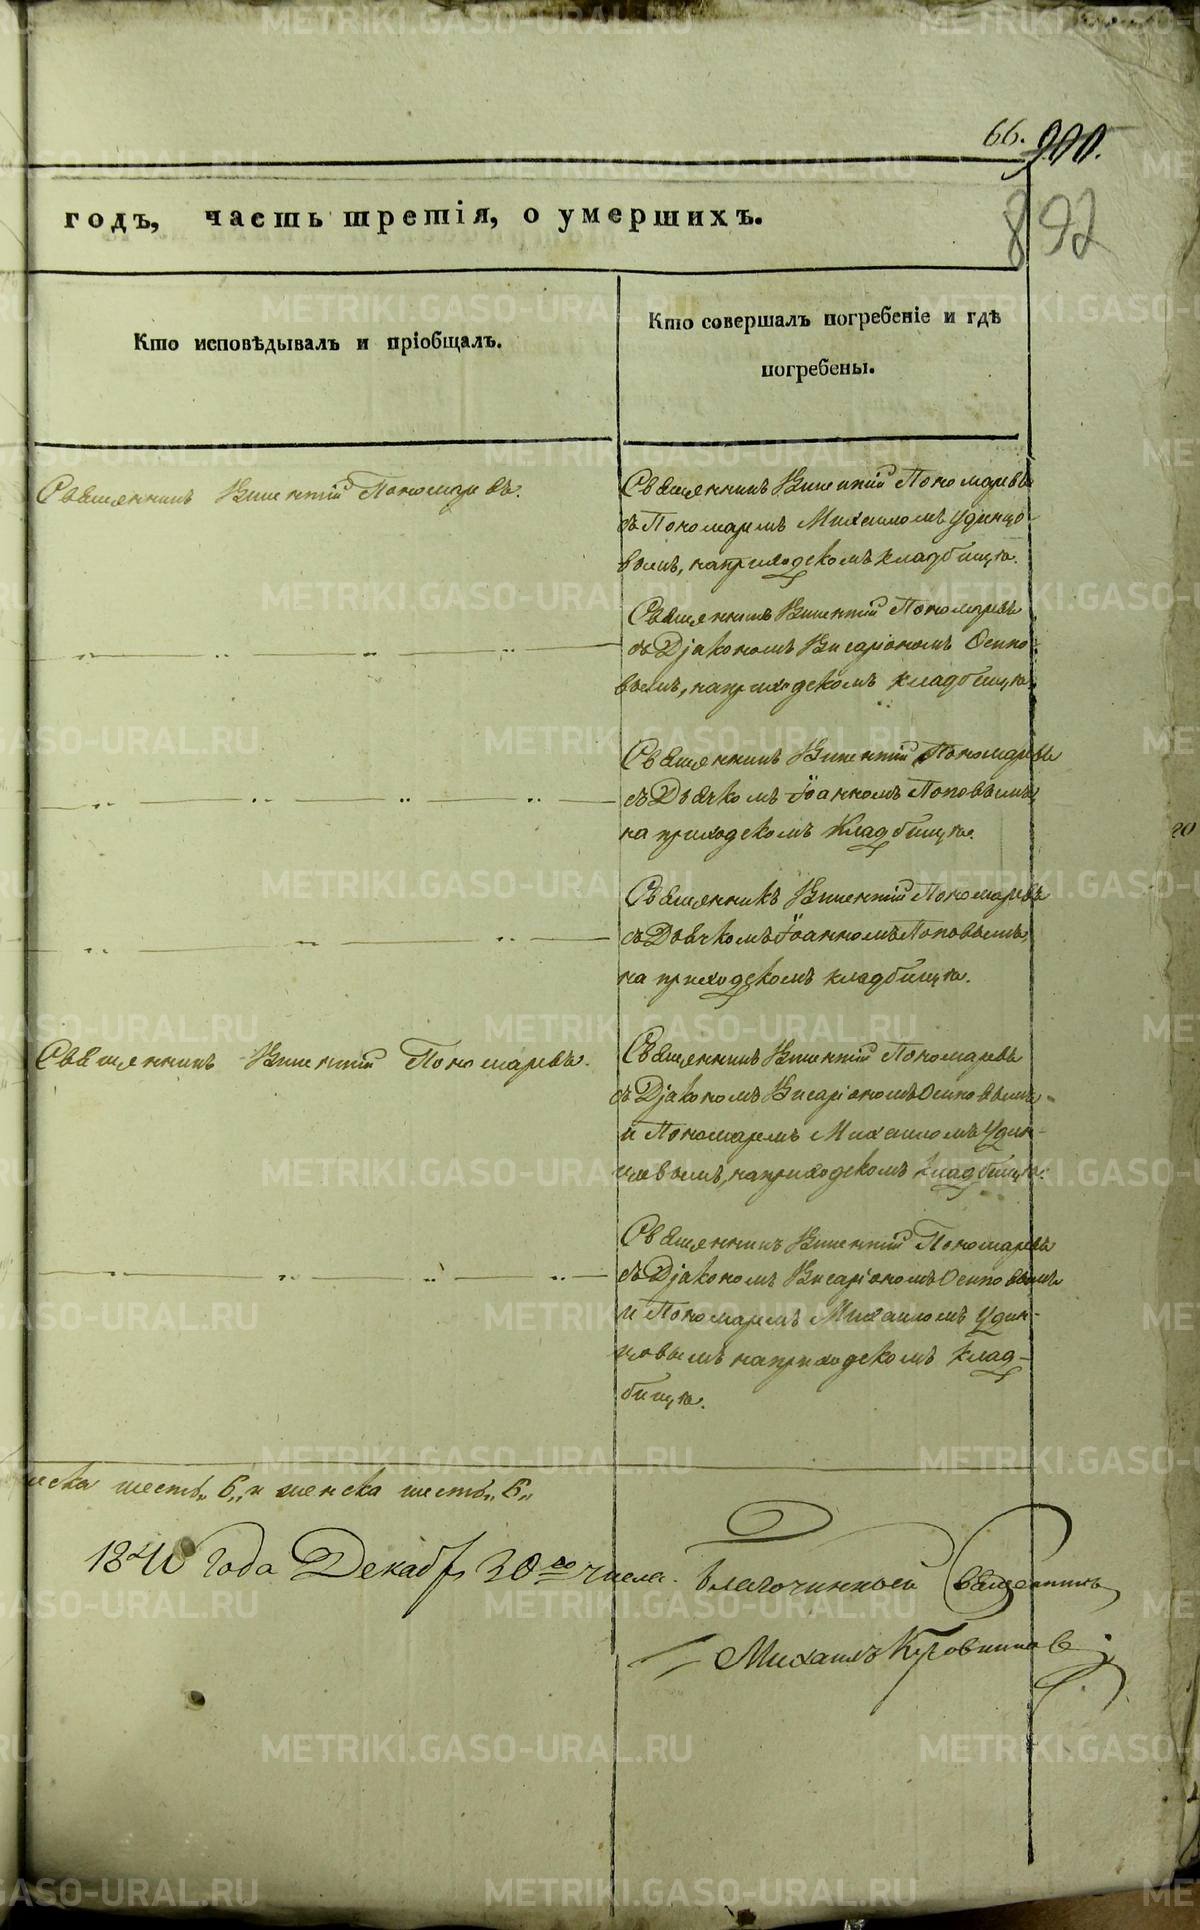 66. 900.
892
годъ, часть третія, о умершихъ.
Кто исповѣдывалъ и пріобщалъ.
Кто совершалъ погребеніе и гдѣ
погребены.
Священникъ Викентій Пономаревъ.
Священникъ Викентій Пономаревъ
съ Пономаремъ Михаиломъ Удинцо-
вымъ, на приходскомъ кладбищѣ.
Священникъ Викентій Пономаревъ
съ Діакономъ Висаріономъ Осипо-
вымъ, на приходскомъ кладбищѣ.
Священникъ Викентій Пономаревъ
съ Дьячкомъ Іоанномъ Поповымъ,
на приходскомъ кладбищѣ.
Священникъ Викентій Пономаревъ
съ Дьячкомъ Іоанномъ Поповымъ,
на приходскомъ кладбищѣ.
Священникъ Викентій Пономаревъ.
Священникъ Викентій Пономаревъ
съ Діакономъ Висаріономъ Осиповымъ
и Пономаремъ Михаиломъ Удин-
цовымъ, на приходскомъ кладбищѣ.
Священникъ Викентій Пономаревъ
съ Діакономъ Висаріономъ Осиповымъ
и Пономаремъ Михаиломъ Удин-
цовымъ на приходскомъ клад-
бищѣ.
шесть „6„ и женска шесть „6„
1840 года Декабря 30го числа. Благочинный Священникъ
Михаилъ
METRIKI.GASO-URAL.RU